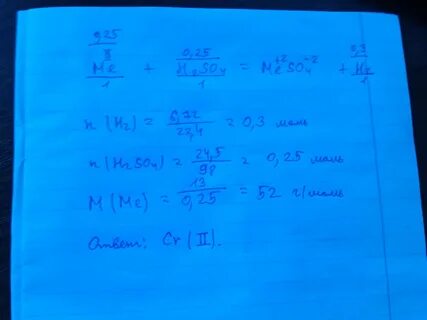 0,25 0,25 0,3
II
Me + H₂SO₄ = Me⁺²SO₄⁻² + H₂
1 1 1
n(H₂) = 6,72/22,4 = 0,3 моль
n(H₂SO₄) = 24,5/98 = 0,25 моль
M(Me) = 13/0,25 = 52 г/моль
Ответ: Cr(II).